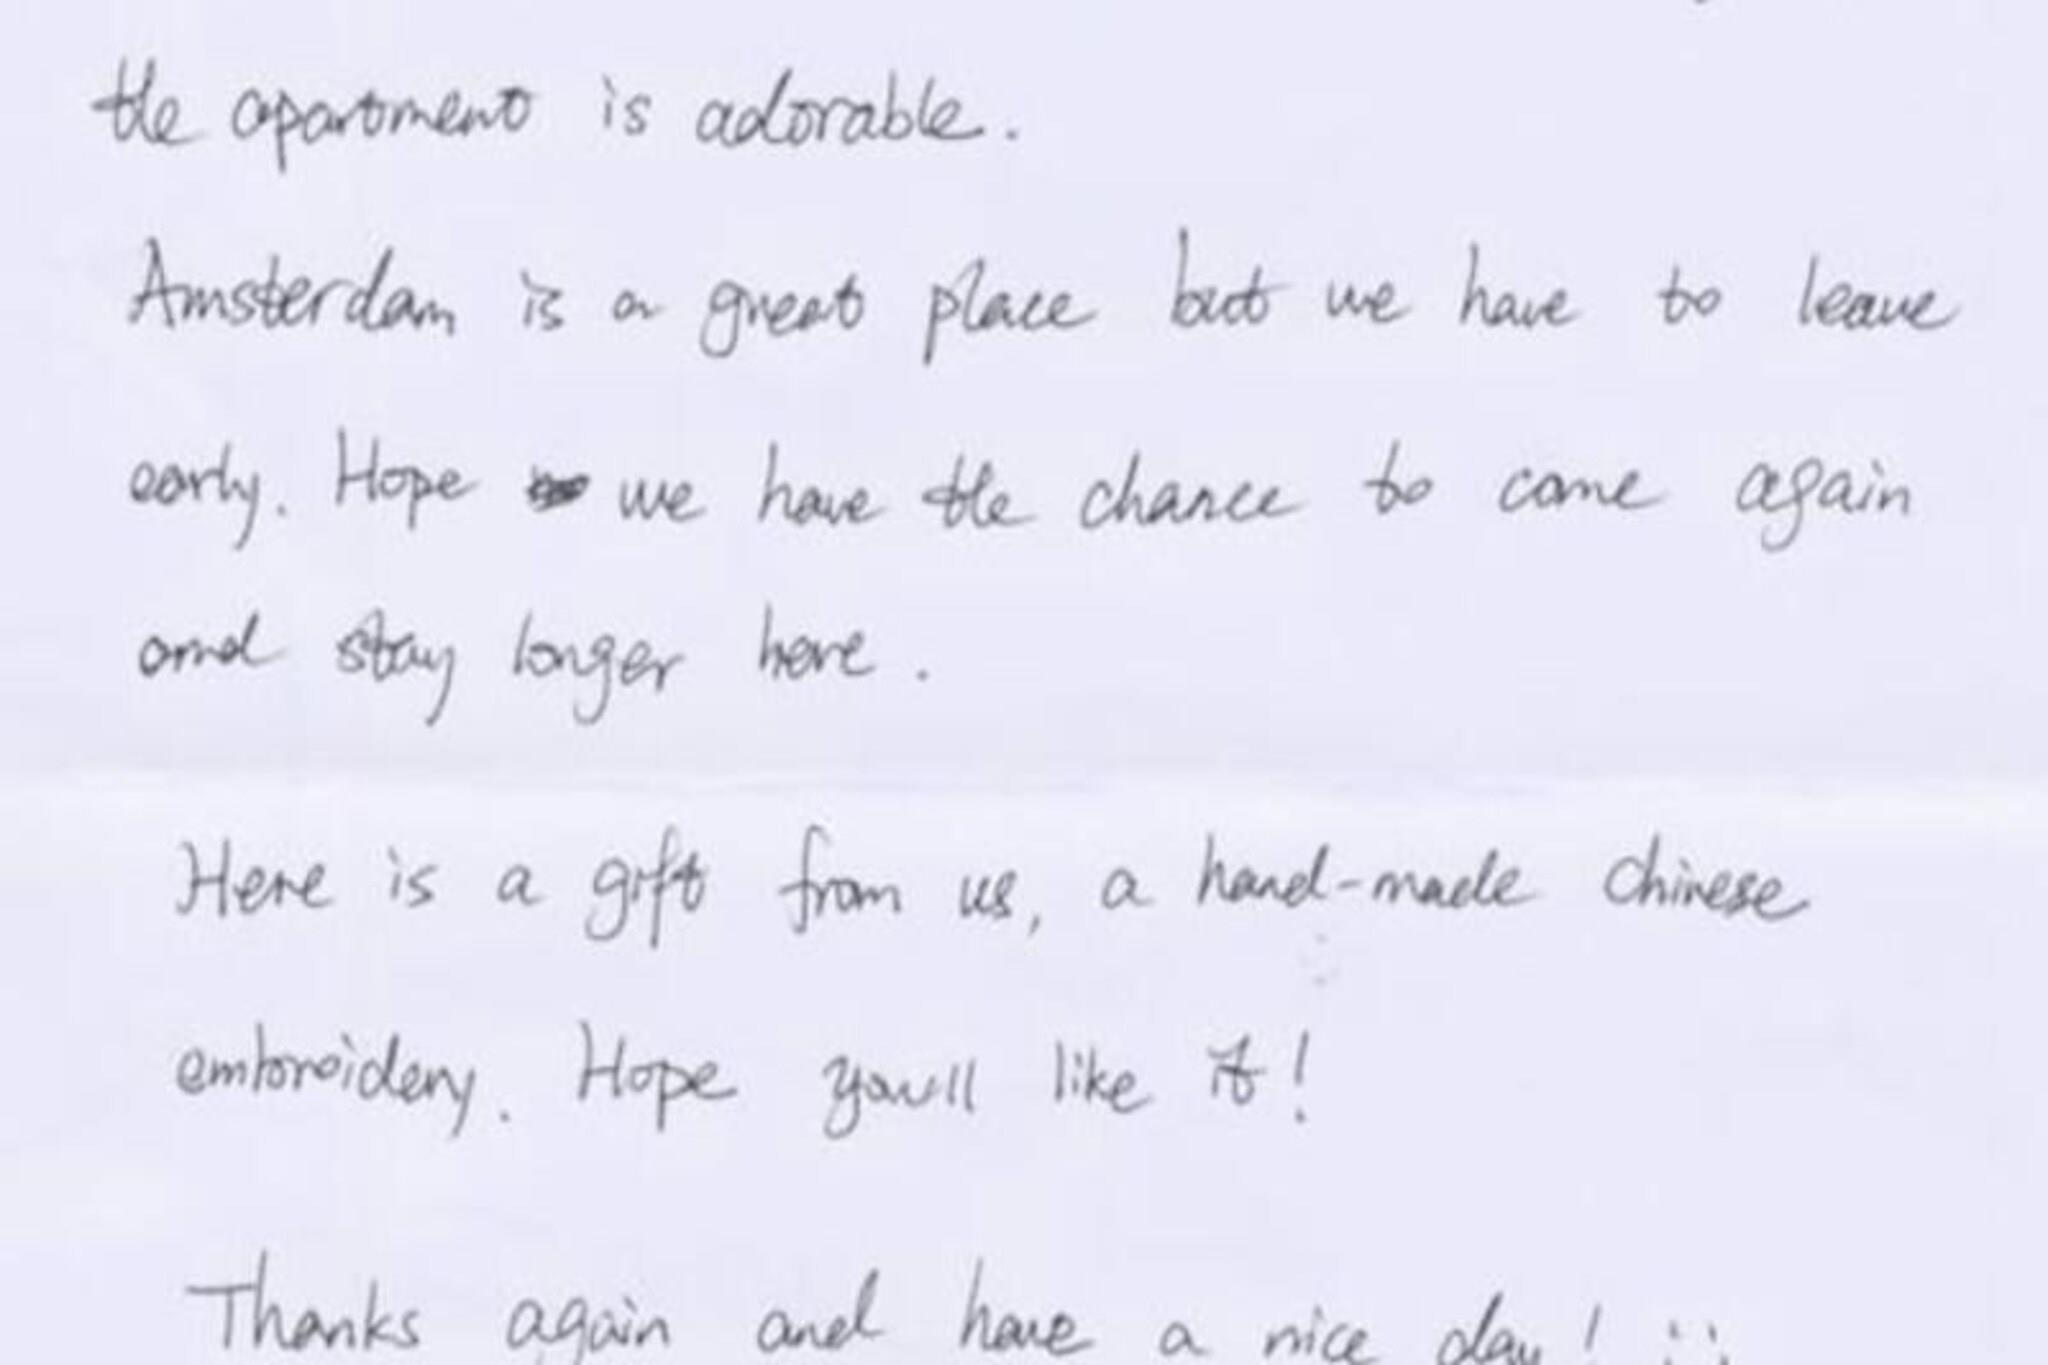 the apartment is adorable.
Amsterdam is a great place but we have to leave
early. Hope we have the chance to come again
and stay longer here.
Here is a gift from us, a hand-made Chinese
embroidery. Hope you'll like it!
Thanks again and have a nice day!